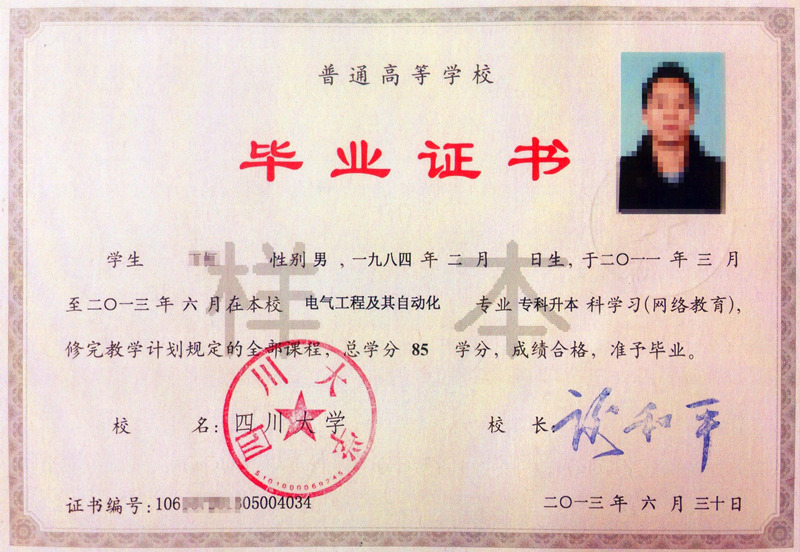 普通高等学校
毕业证书
样本
学生 性别 男 , 一九八四 年 二 月 日生, 于二〇一一 年 三 月
至二〇一三 年 六 月在本校 电气工程及其自动化 专业 专科升本 科学习(网络教育),
修完教学计划规定的全部课程, 总学分 85 学分, 成绩合格, 准予毕业。
校 名: 四川大学
校 长: 谢和平
四川大学
5101000069745
证书编号: 106 05004034
二〇一三 年 六 月 三十日